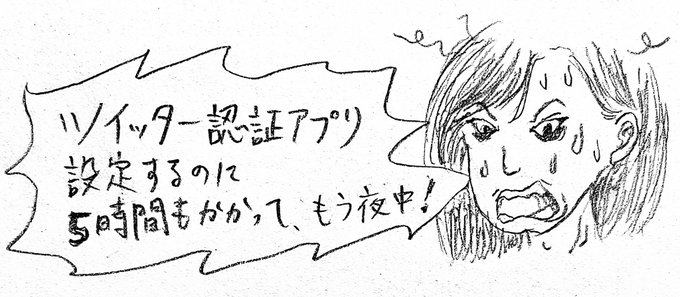 ツイッター認証アプリ
設定するのに
5時間もかかって、もう夜中!